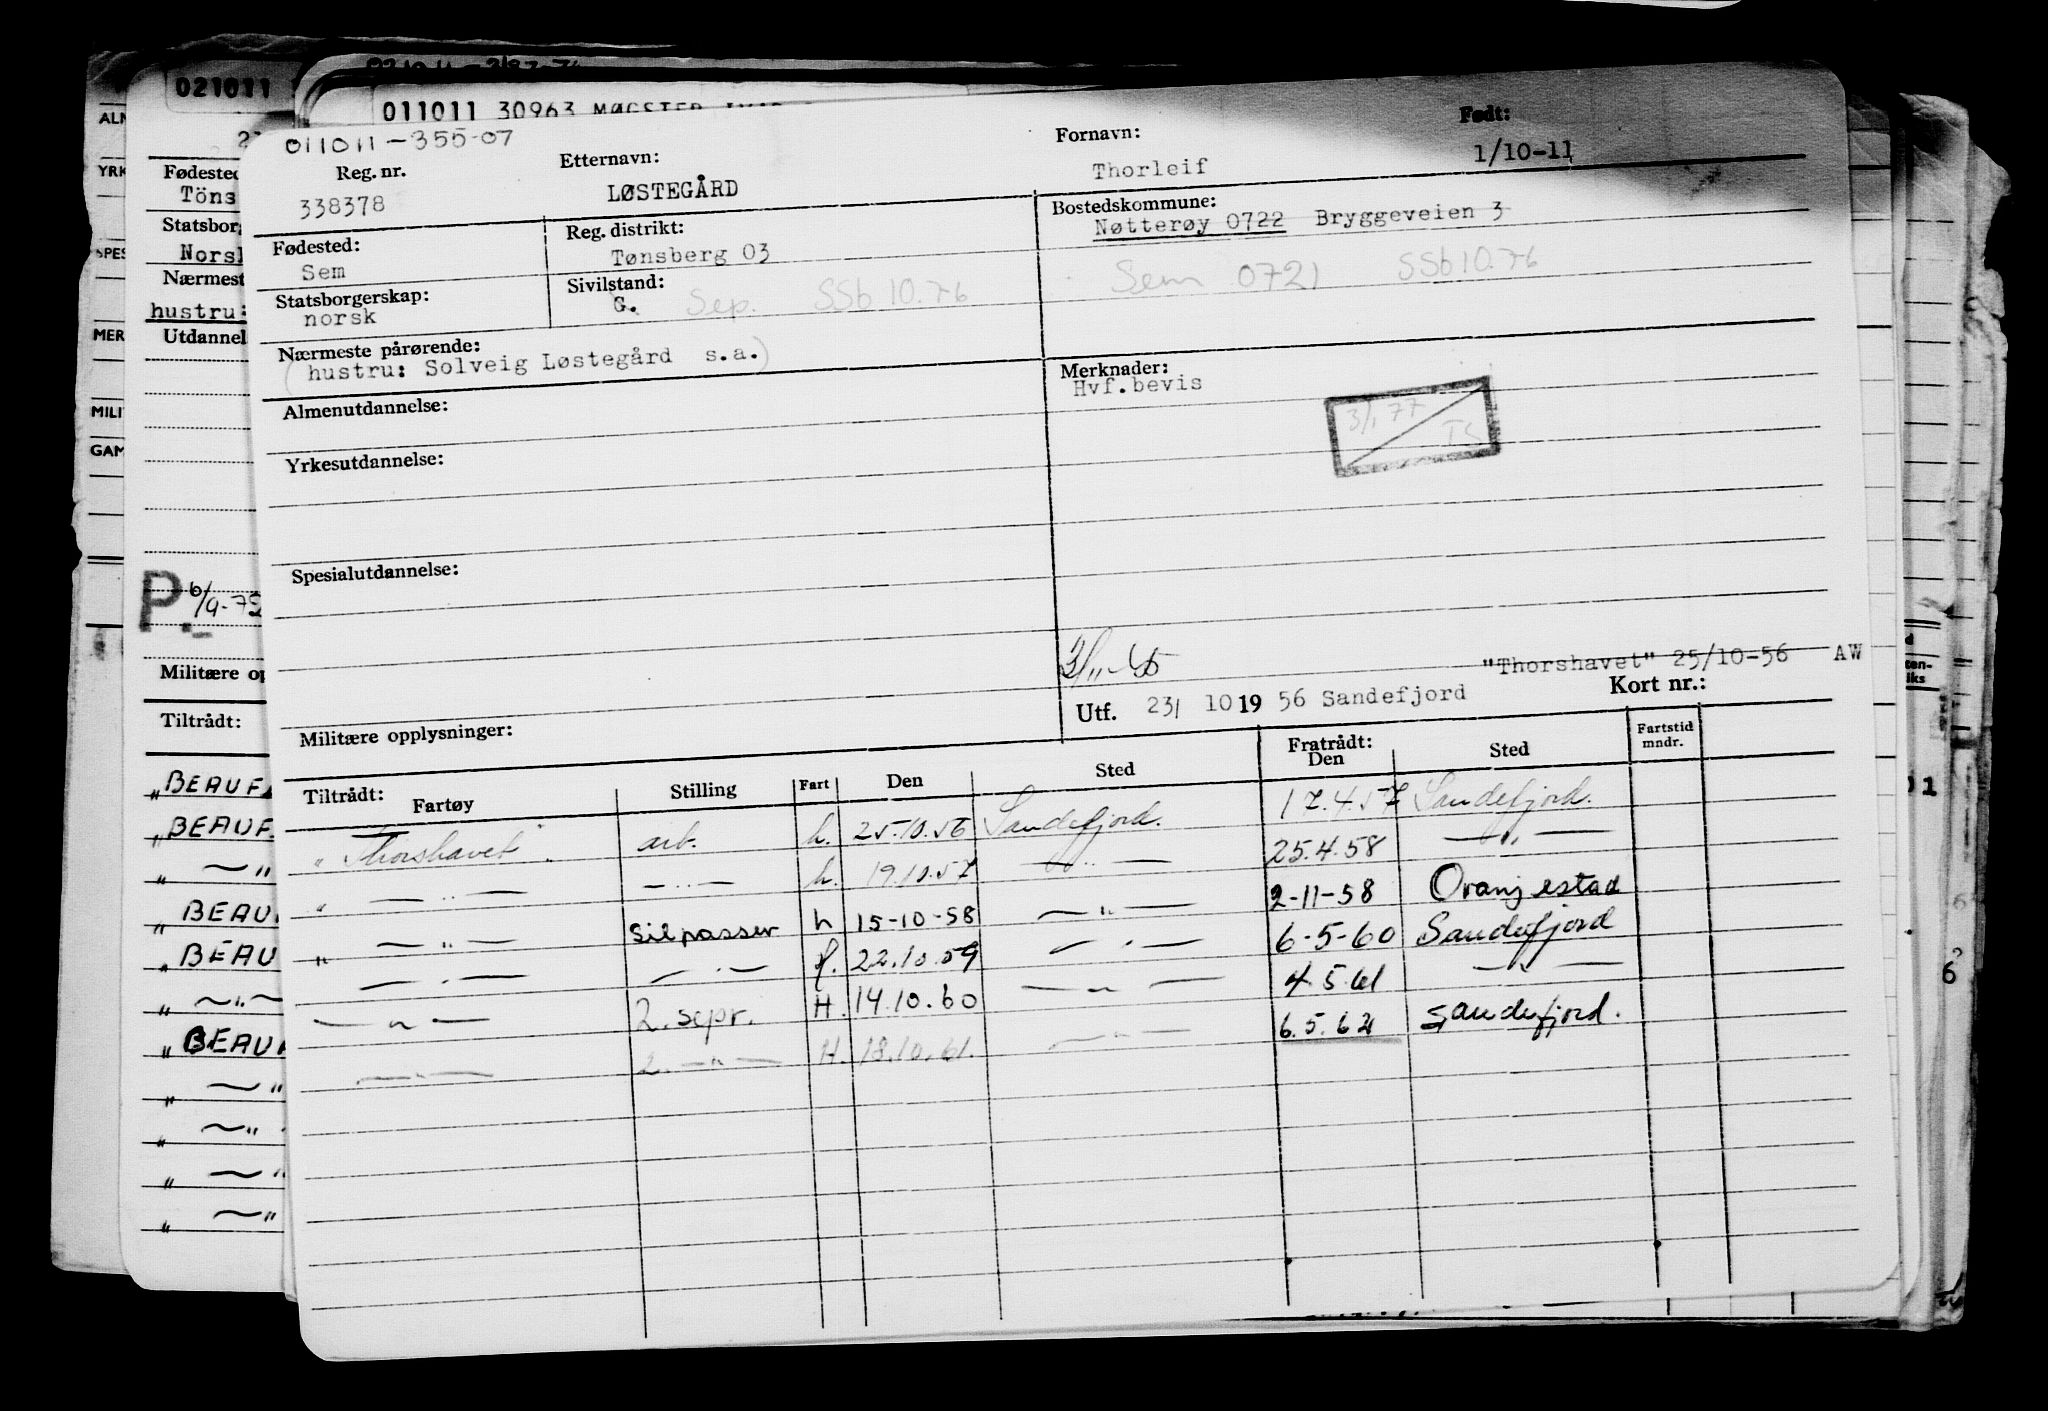 021011
011011 30963 MØGSTER
011011-355-07
Reg. nr.
338378
Etternavn:
LØSTEGÅRD
Fornavn:
Thorleif
Født:
1/10-11
Fødested:
Sem
Reg. distrikt:
Tønsberg 03
Bostedskommune:
Nøtterøy 0722 Bryggeveien 3
Sem 0721 SSb 10.76
Statsborgerskap:
norsk
Sivilstand:
G. Sep. SSb 10.76
Nærmeste pårørende:
(hustru: Solveig Løstegård s.a.)
Merknader:
Hvf.bevis
3/1 77
TS
Almenutdannelse:
Yrkesutdannelse:
Spesialutdannelse:
"Thorshavet" 25/10-56 AW
Utf. 23/ 10 19 56 Sandefjord
Kort nr.:
Militære opplysninger:
Tiltrådt:
Fartøy Stilling Fart Den Sted Fratrådt: Den Sted Fartstid mndr.
"Thorshavet" arb. h. 25.10.56 Sandefjord. 17.4.57 Sandefjord.
" — " — — " — h. 19.10.57 — " — 25.4.58 — " —
" — " — Silpasser h 15-10-58 — " — 2-11-58 Oranjestad
— " — — " — h. 22.10.59 — " — 6-5-60 Sandefjord
— " — 2. sepr. H. 14.10.60 — " — 4.5.61 — " —
— " — 2. — " — H. 18.10.61. — " — 6.5.62 Sandefjord.
ALN
YRK
SPES
MER
MILI
GAM
Fødested
Töns
Statsborg
Norsk
Nærmest
hustru:
Utdannel
P. 6/9-75
Militære op
Tiltrådt:
"BEAUF
"BEAUF
" — "
BEAU
" BEAU
" — " —
" BEAU
— "
" — "
" — "
" — "